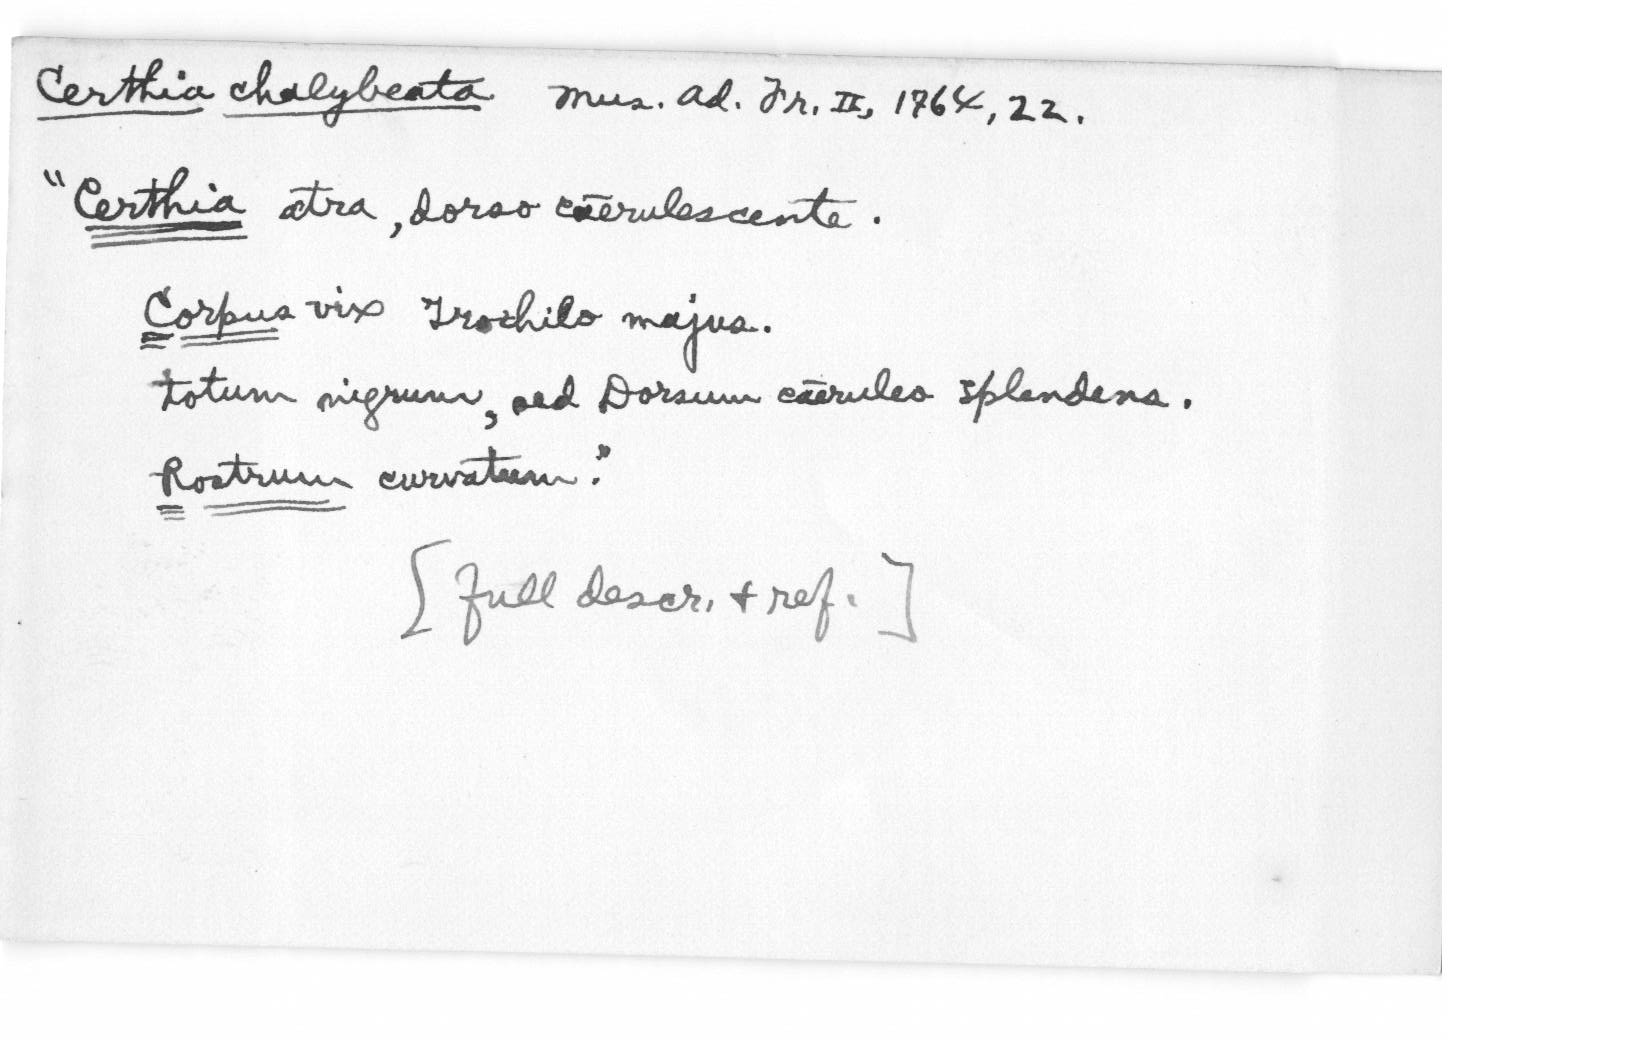 Certhia chalybeata Mus. Ad. Fr. II, 1764, 22.
"Certhia atra, dorso cærulescente.
Corpus vix Trochilo majus.
totum nigrum, sed Dorsum cæruleo splendens.
Rostrum curvatum."
[full descr. + ref.]